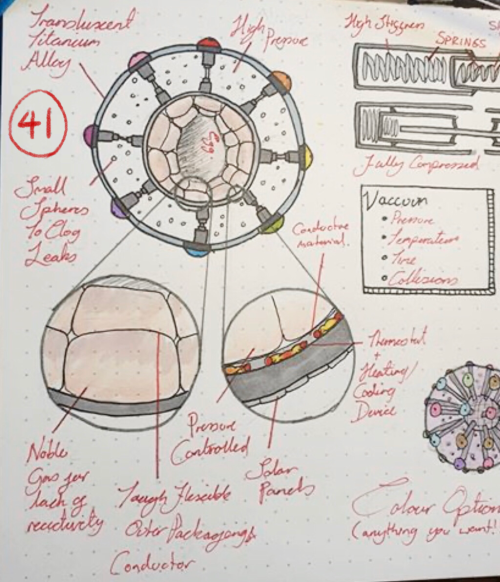 Translucent
Titanium
Alloy
High Pressure
High Stiffness
SPRINGS
41
Egg
Fully Compressed
Small
Spheres
To Clog
Leaks
Vaccuum
• Pressure
• Temperature
• Time
• Collisions
Conductive
material.
Thermostat
+
Heating/
Cooling
Device
Pressure
Controlled
Solar
Panels
Noble
Gas for
lack of
reactivity
Tough Flexible
Outer Packaging
Conductor
Colour Option
(anything you want!